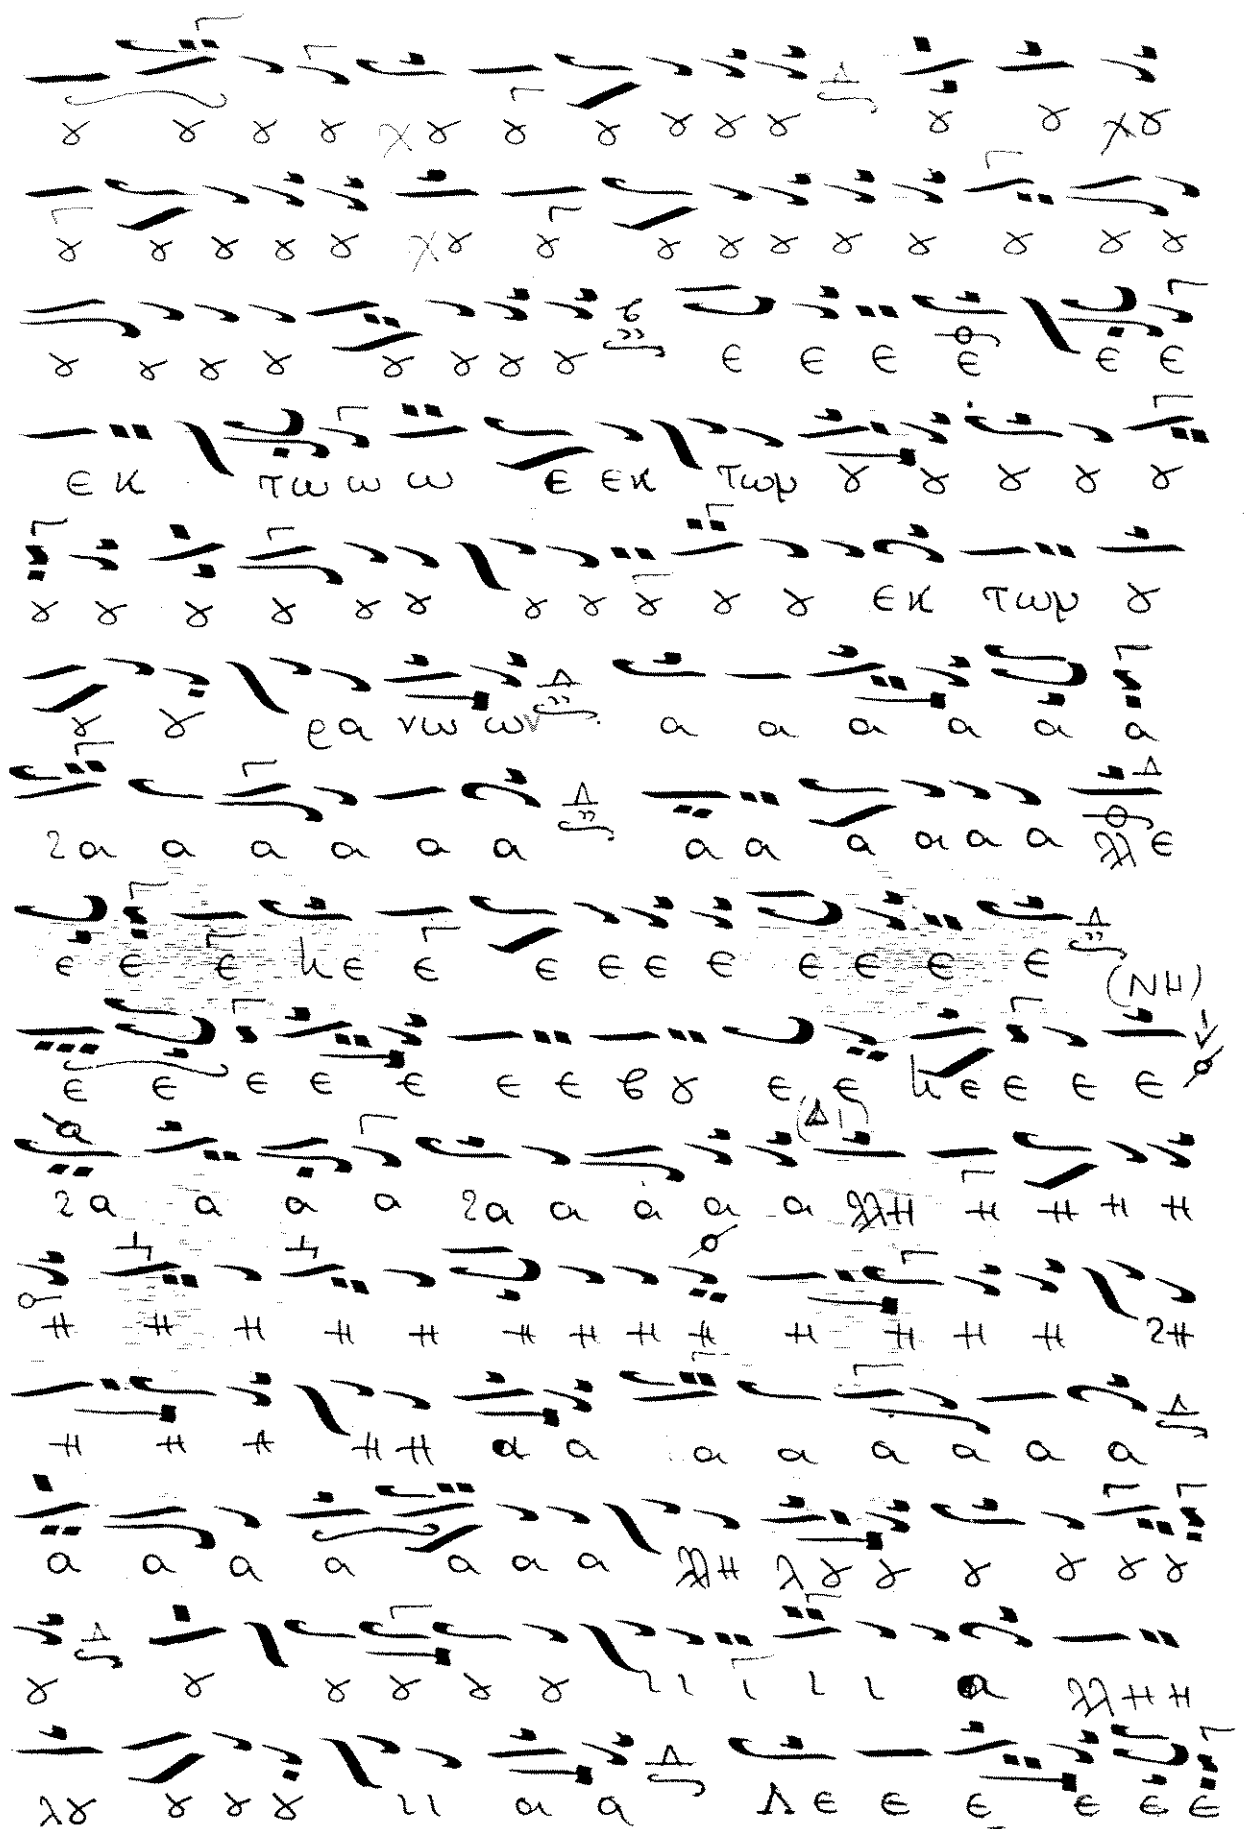 ȣ ȣ ȣ ȣ χȣ ȣ ȣ ȣ ȣ ȣ ȣ ȣ χȣ
ȣ ȣ ȣ ȣ ȣ χȣ ȣ ȣ ȣ ȣ ȣ ȣ ȣ ȣ ȣ
ȣ ȣ ȣ ȣ ȣ ȣ ȣ ȣ ε ε ε ε ε ε
ε κ τω ω ω ε εκ τωμ ȣ ȣ ȣ ȣ ȣ
ȣ ȣ ȣ ȣ ȣ ȣ ȣ ȣ ȣ ȣ ȣ εκ τωμ ȣ
ȣ ȣ ρα νω ων α α α α α α
α α α α α α α α α α α α λλε
ε ε ε ε ε ε ε ε ε ε ε ε ε
(ΝΗ)
ε ε ε ε ε ε ε β ȣ ε ε ε ε ε ε
(Δι)
α α α α α α α α α λλη η η η η
η η η η η η η η η η η η η η
η η η η η α α α α α α α α
α α α α α α α λλη λȣ ȣ ȣ ȣ ȣ ȣ
ȣ ȣ ȣ ȣ ȣ ȣ ι ι ι ι ι α λλη η
λȣ ȣ ȣ ȣ ι ι α α Λε ε ε ε ε ε